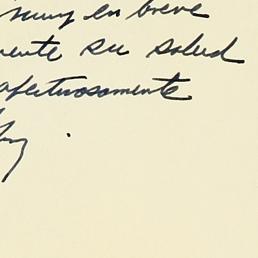 muy en breve
mente su salud
afectuosamente